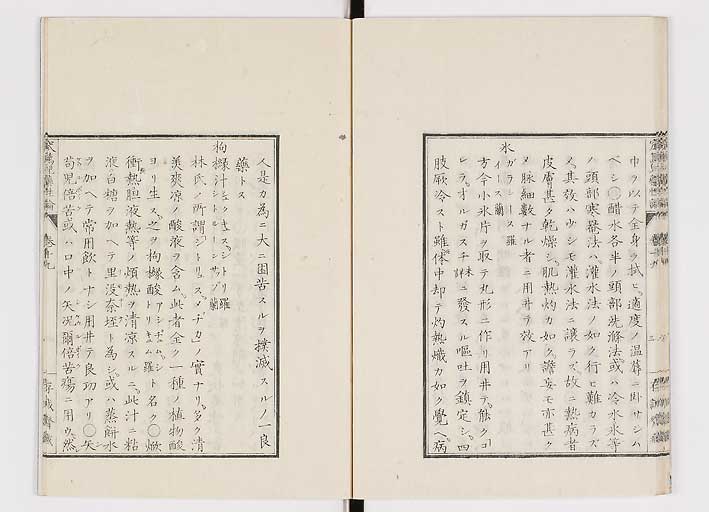 巾ヲ以テ全身ヲ拭ヒ適度ノ温蓐ニ臥サシム
ベシ〇醋水各半ノ頭部洗滌法或ハ冷水氷等
ノ頭部寒罨法ハ灌水法ノ如ク行ヒ難カラズ
〆其效ハ少シモ灌水法ニ讓ラズ故ニ熱病者
皮膚甚ク乾燥シ肌熱灼カ如ク譫妄モ亦甚ク
〆脉細數ナル者ニ用井テ效アリ
氷 ガラシース 羅 イース 蘭
方今小氷片ヲ取テ丸形ニ作リ用井テ能クコ
レラ オルガスチ ニ發スル嘔吐ヲ鎮定シ四
肢厥冷スト雖体中却テ灼熱熾カ如ク覺ヘ病
人是カ為ニ大ニ困苦スルヲ撲滅スルノ一良
藥トス
枸櫞汁 シュクキュス シトリ 羅 シトルーンサップ 蘭
林氏ノ所謂シトリュス メヂカノ實ナリ多ク清
美爽凉ノ酸液ヲ含ム此者全ク一種ノ植物酸
ヨリ生ス之ヲ枸櫞酸 アシヂュム シトリキュム 羅 ト名ク〇焮
衝熱膽液熱等ノ煩熱ヲ清凉スルニ此汁ニ粘
液白糖ヲ加ヘテ里没奈垤ト為シ或ハ蒸餅水
ヲ加ヘテ常用飲トナシ用井テ良功アリ〇矢
苟児倍苦或ハ口中ノ矢苟爾倍苦瘍ニ用ウ然